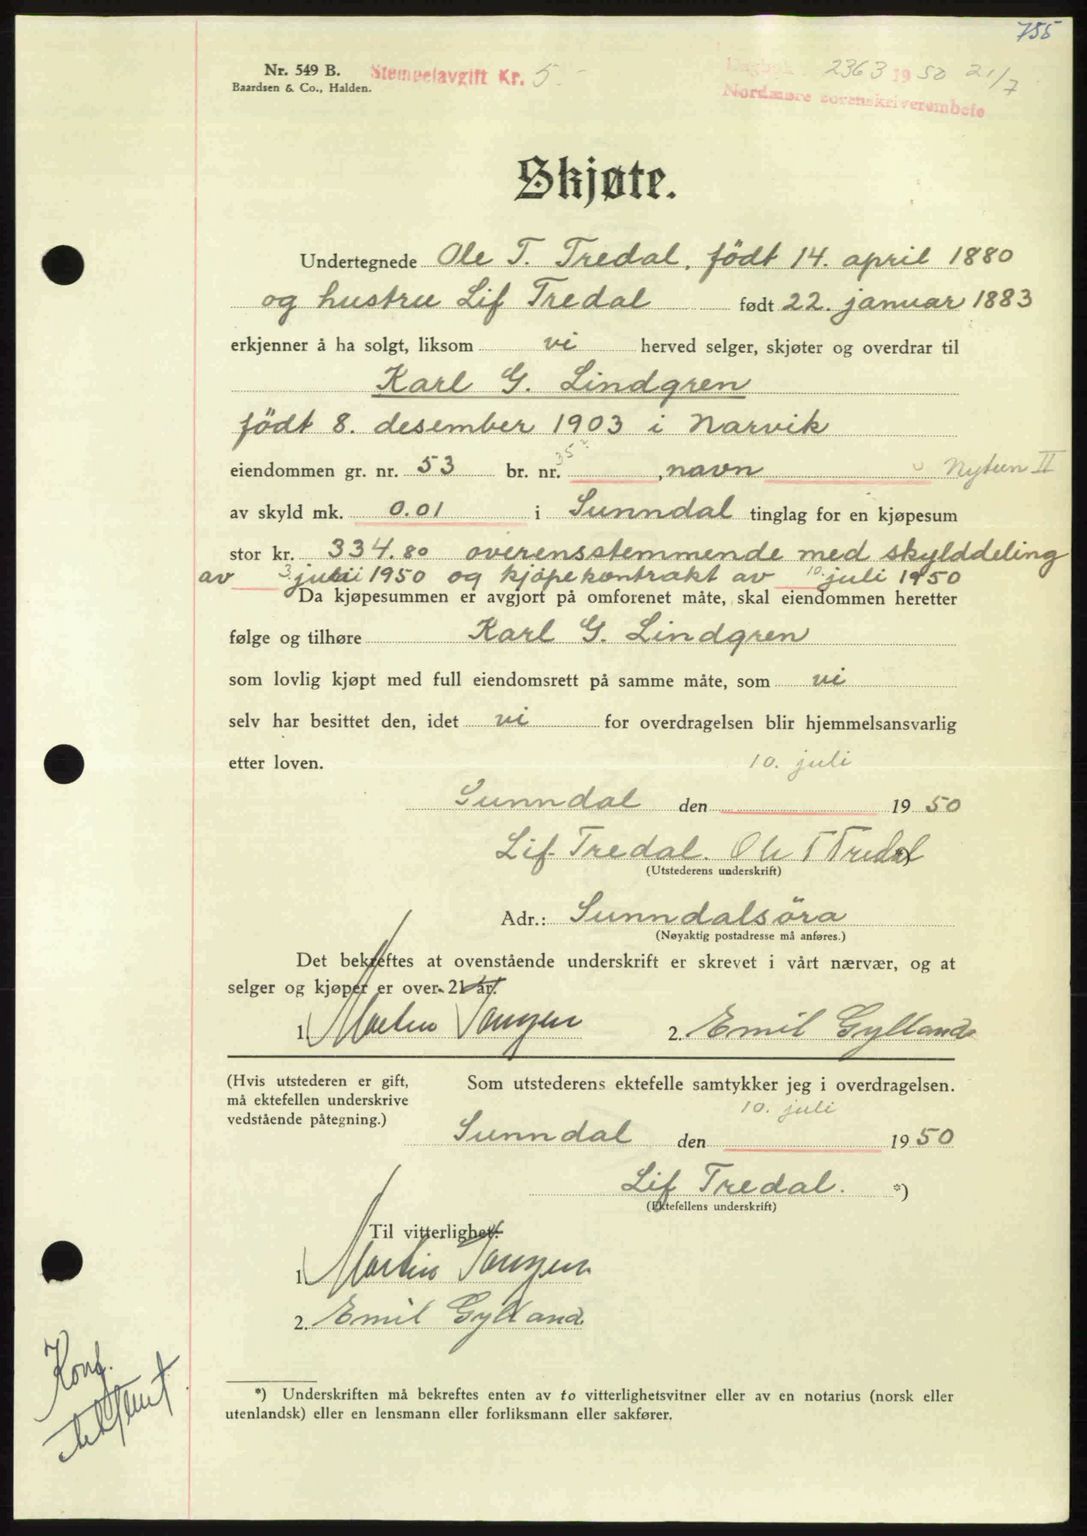 755
Nr. 549 B.
Baardsen & Co., Halden.
Stempelavgift Kr. 5.-
Dagbok 2363 1950 21/7
Nordmøre sorenskriverembete
Skjøte.
Undertegnede Ole T. Tredal, födt 14. april 1880
og hustru Lif Tredal født 22. januar 1883
erkjenner å ha solgt, liksom vi herved selger, skjøter og overdrar til
Karl G. Lindgren
födt 8. desember 1903 i Narvik
eiendommen gr. nr. 53 br. nr. , navn
av skyld mk. 0.01 i Sunndal tinglag for en kjøpesum
stor kr. 334.80 overensstemmende med skylddeling
av 3. juli 1950 og kjöpekontrakt av 10. juli 1950
Da kjøpesummen er avgjort på omforenet måte, skal eiendommen heretter
følge og tilhøre Karl G. Lindgren
som lovlig kjøpt med full eiendomsrett på samme måte, som vi
selv har besittet den, idet vi for overdragelsen blir hjemmelsansvarlig
etter loven.
10. juli
Sunndal den 1950
Lif Tredal. Ole T Tredal *)
(Utstederens underskrift)
Adr.: Sunndalsöra
(Nøyaktig postadresse må anføres.)
Det bekreftes at ovenstående underskrift er skrevet i vårt nærvær, og at
selger og kjøper er over 21 år.
1. Martin 2. Emil Gylland
(Hvis utstederen er gift,
må ektefellen underskrive
vedstående påtegning.)
Som utstederens ektefelle samtykker jeg i overdragelsen.
10. juli
Sunndal den 1950
Lif Tredal. *)
(Ektefellens underskrift)
Til vitterlighet:
1. Martin
2. Emil Gylland
*) Underskriften må bekreftes enten av to vitterlighetsvitner eller av en notarius (norsk eller
utenlandsk) eller en lensmann eller forliksmann eller sakfører.